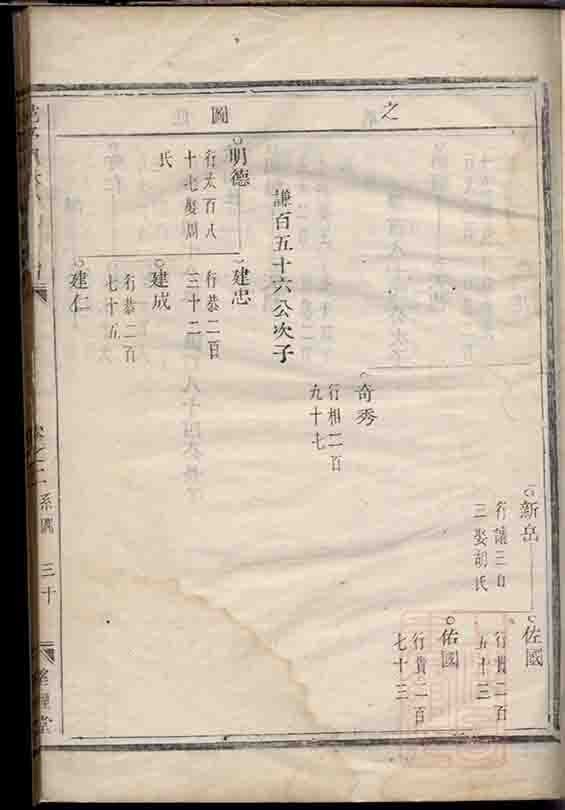 之
圖
新岳
行讓三百
三娶胡氏
佐國
行貴二百
五十三
佑國
行貴二百
七十三
奇秀
行相二百
九十七
謙百五十六公次子
明德
行太百八
十七娶周
氏
建忠
行恭二百
三十二
建成
行恭二百
七十五
建仁
卷之二
系圖
三十